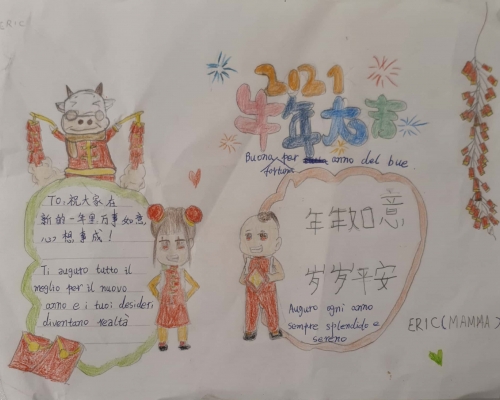 ERIC
2021
牛年大吉
Buona per anno del bue
fortuna
To:祝大家在
新的一年里万事如意,
心想事成!
Ti auguro tutto il
meglio per il nuovo
anno e i tuoi desideri
diventano realtà
年年如意
岁岁平安
Auguro ogni anno
sempre splendido e
sereno
ERIC(MAMMA)